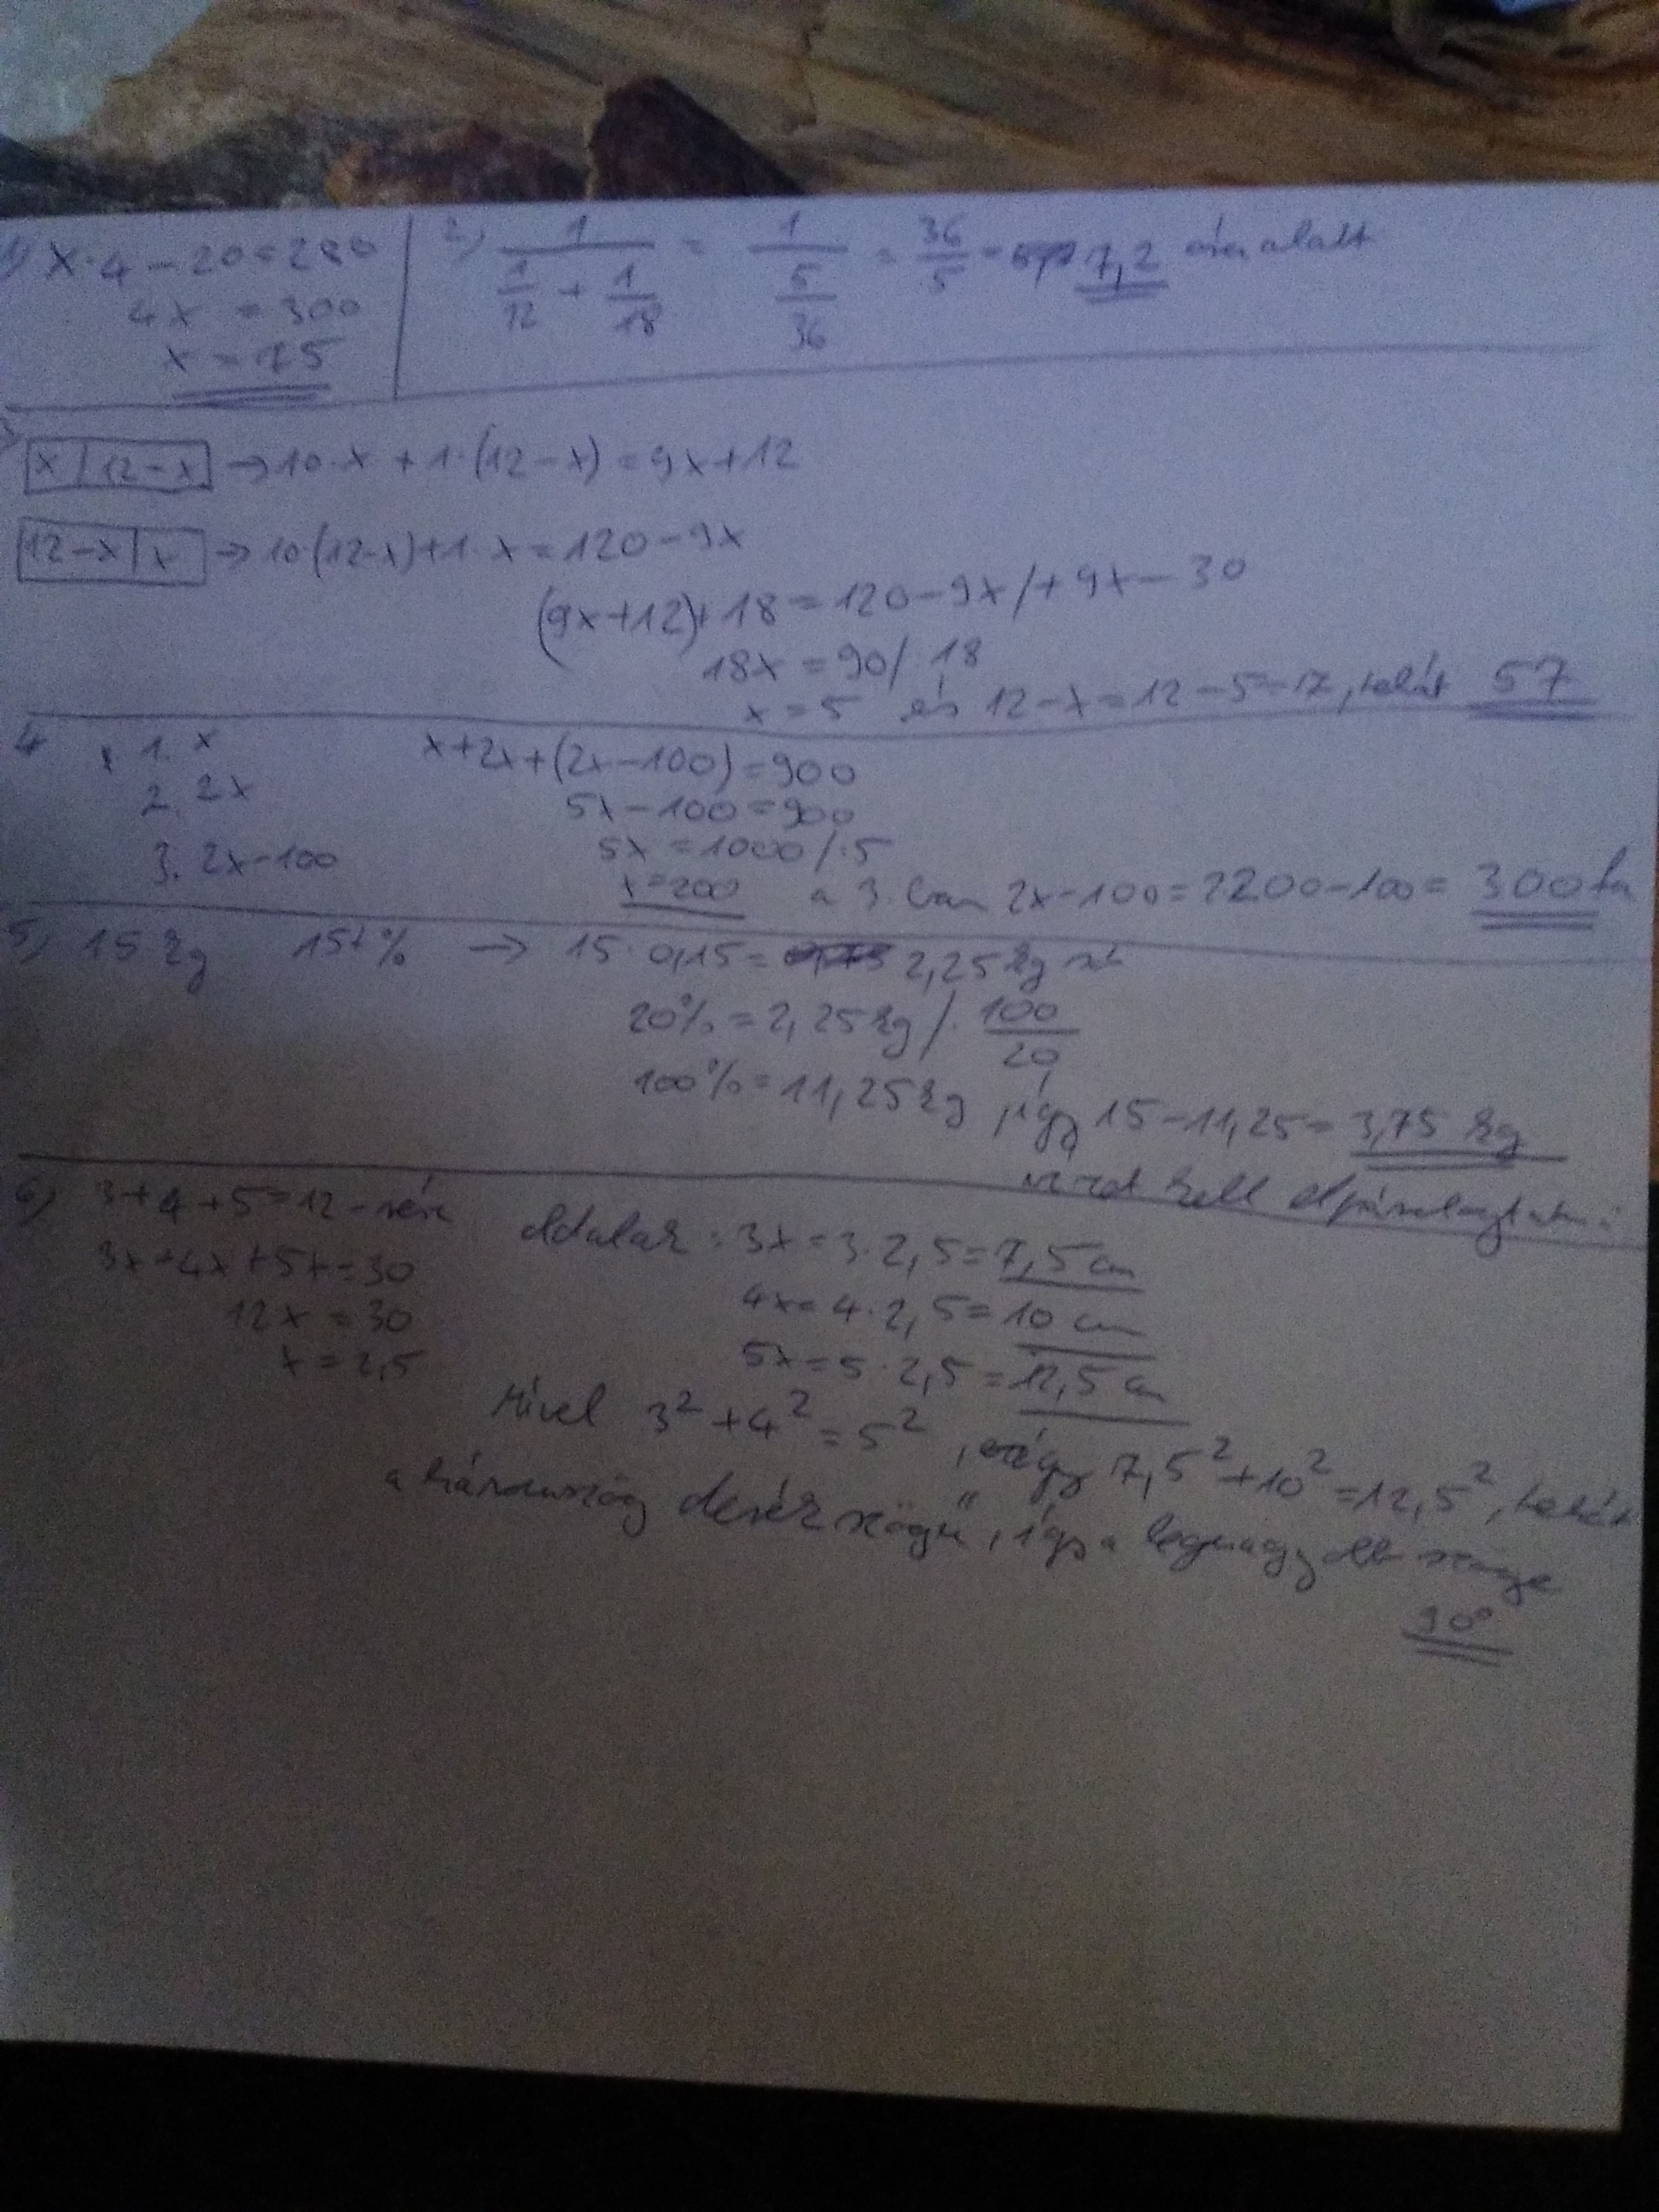 1) x·4-20=280
4x = 300
x = 75
2) 1/(1/12 + 1/18) = 1/(5/36) = 36/5 = 7,2 óra alatt
x | 12-x → 10·x + 1·(12-x) = 9x+12
12-x | x → 10·(12-x)+1·x = 120-9x
(9x+12)+18 = 120-9x /+9x-30
18x = 90 /:18
x = 5 és 12-x = 12-5=7, tehát 57
4 1. x
2. 2x
3. 2x-100
x+2x+(2x-100)=900
5x-100=900
5x = 1000 /:5
x=200 a 3.-ban 2x-100=2·200-100= 300
5) 15 kg 15% → 15·0,15= 2,25 kg
20% = 2,25 kg /· 100/20
100% = 11,25 kg, így 15-11,25= 3,75 kg
vizet kell elpárologtatni
6) 3+4+5=12 rész
3x+4x+5x=30
12x = 30
x = 2,5
oldalak: 3x=3·2,5=7,5 cm
4x=4·2,5=10 cm
5x=5·2,5=12,5 cm
Mivel 3²+4²=5², így 7,5²+10²=12,5², tehát
a háromszög derékszögű, így a legnagyobb szöge
90°